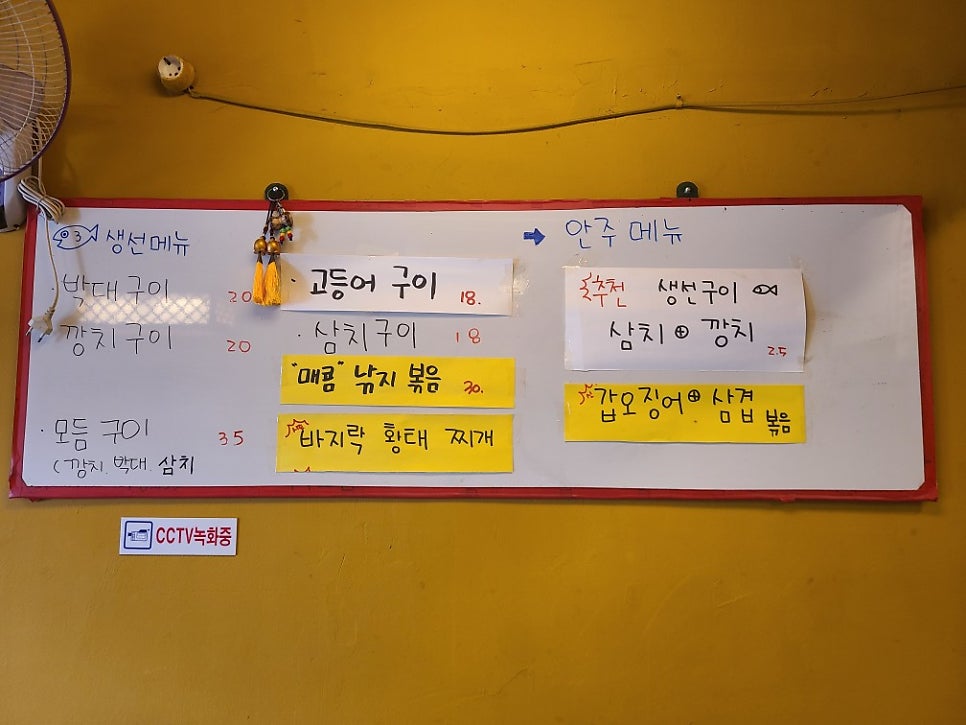 생선메뉴
· 박대 구이 20
· 깡치 구이 20
· 모듬 구이 35
(깡치. 박대. 삼치
· 고등어 구이 18.
· 삼치구이 18
"매콤" 낚지 볶음 30.
바지락 황태 찌개
➡ 안주 메뉴
추천 생선구이
삼치 ⊕ 깡치
25
갑오징어 ⊕ 삼겹
볶음
CCTV녹화중